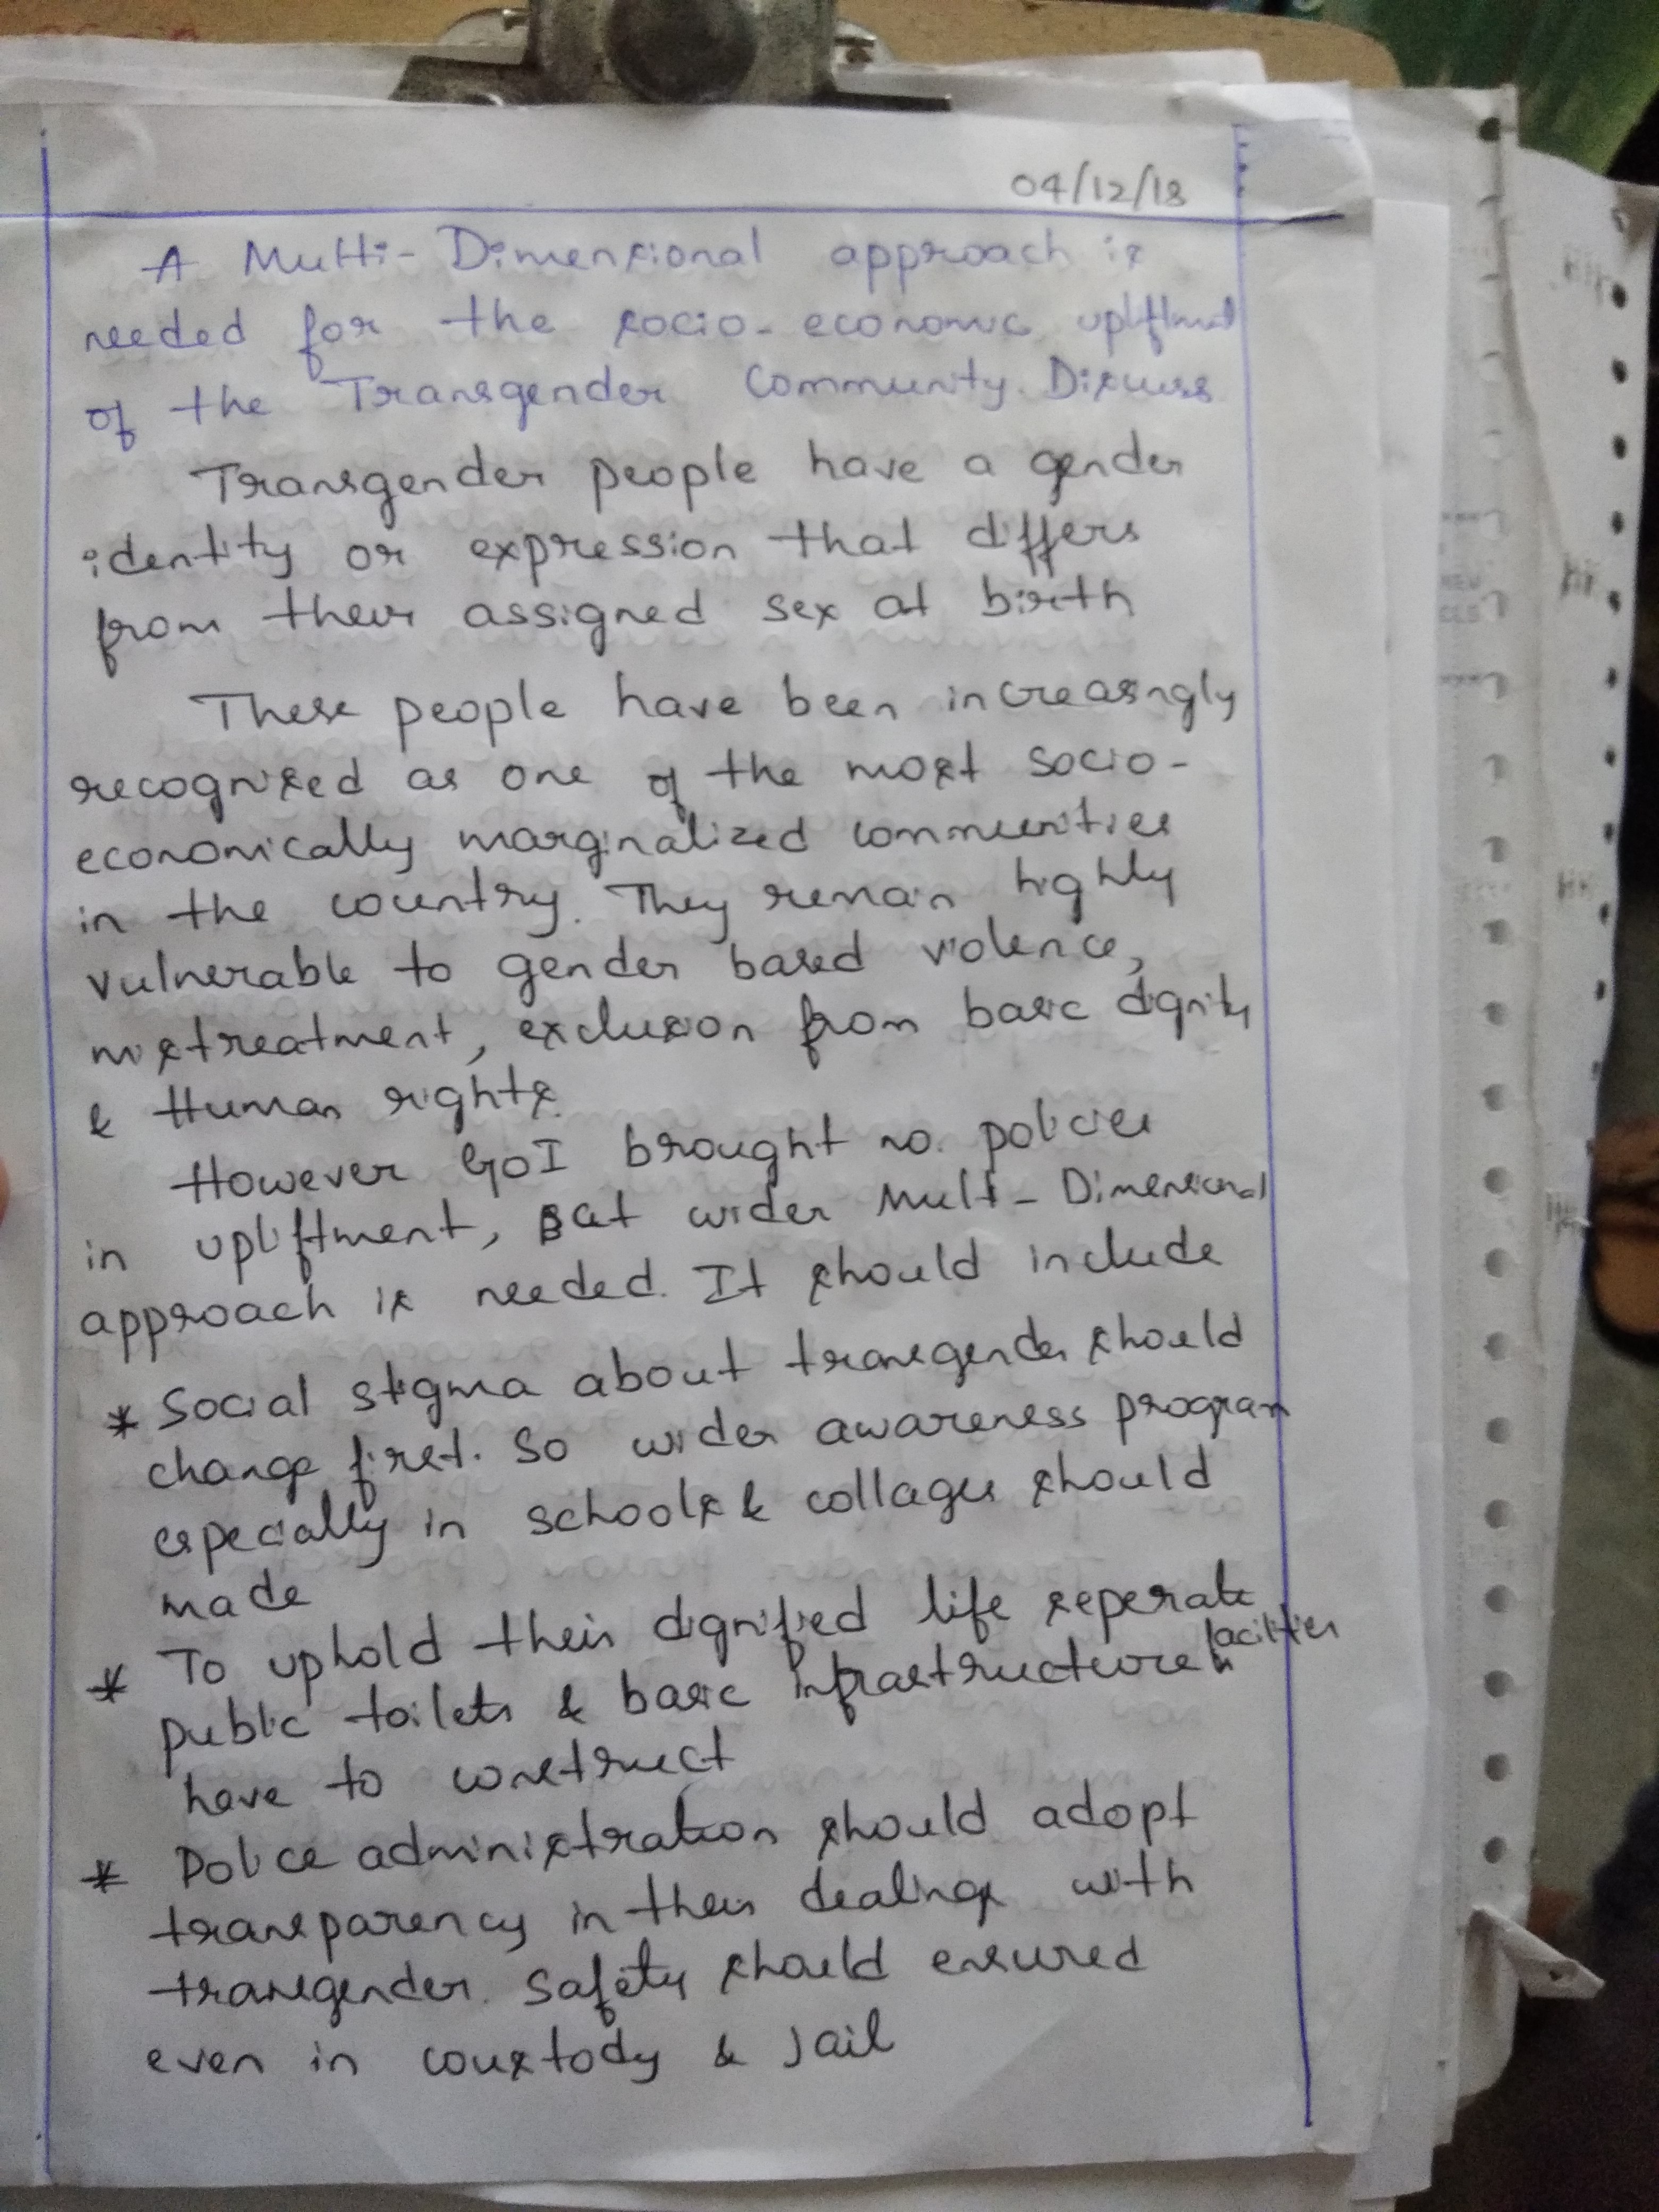 04/12/18
A Multi-Dimensional approach is
needed for the socio-economic upliftment
of the Transgender Community. Discuss
Transgender people have a gender
identity or expression that differs
from their assigned sex at birth
These people have been increasingly
recognised as one of the most socio-
economically marginalized communities
in the country. They remain highly
vulnerable to gender based violence,
mistreatment, exclusion from basic dignity
& Human rights.
However GoI brought no. policies
in upliftment, But wider Multi-Dimensional
approach is needed. It should include
* Social stigma about transgender should
change first. So wider awareness program
especially in schools & collages should
made
* To uphold their dignified life seperate
public toilets & basic infrastructure facilities
have to construct
* Police administration should adopt
transparency in their dealings with
transgender. Safety should ensured
even in coustody & Jail